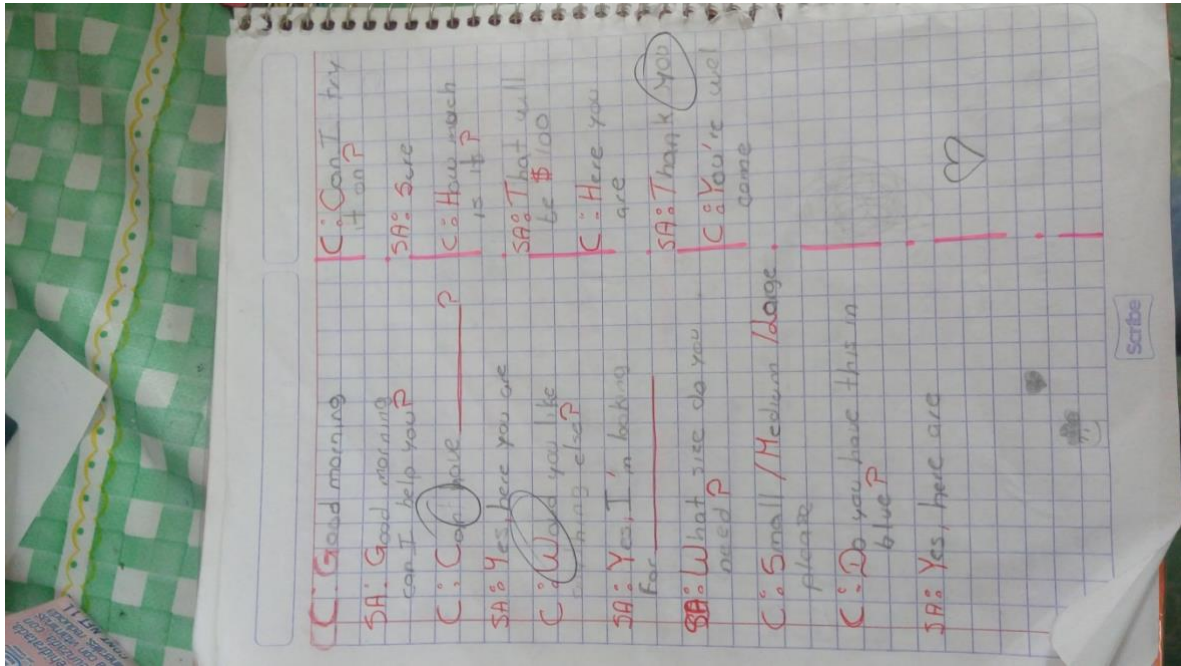 C: Good morning
SA: Good morning
can I help you?
C: Can have ______?
SA: Yes, here you are
C: Woud you like
thing else?
SA: Yes, I'm looking
for ______
SA: What size do you
need?
C: Small / Medium / Large
please
C: Do you have this in
blue?
SA: Yes, here are
C: Can I try
it on?
SA: Sure
C: How much
is it?
SA: That will
be $100
C: Here you
are
SA: Thank you
C: You're wel
come
Scribe